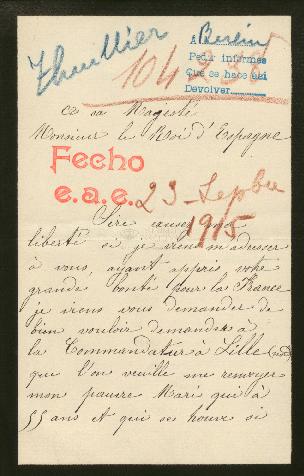 Thuillier
A Berlin
Pedir informes
Que se hace así
Devolver
104938
a sa Majesté
Monsieur le Roi d'Espagne
Fecho
e.a.e. 23 Sepbre
1915
Sire
liberté si je viens m'adresser
à vous, ayant appris votre
grande bonté pour la France
je viens vous demander de
bien vouloir demander à
la Commandature à Lille (nord)
que l'on veuille me renvoyer
mon pauvre Mari qui à
55 ans et qui se trouve si